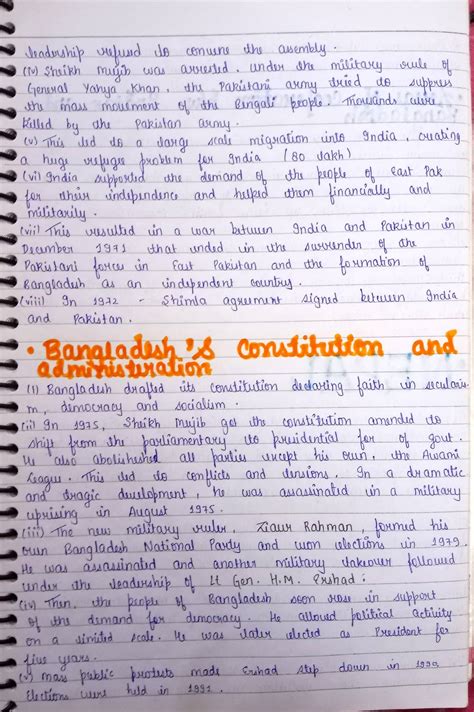 leadership refused to convene the assembly.
(iv) Sheikh Mujib was arrested. Under the military rule of
General Yahya Khan, the Pakistani army tried to suppress
the mass movement of the Bengali people. Thousands were
killed by the Pakistan army.
(v) This led to a large scale migration into India, creating
a huge refugee problem for India (80 lakh)
(vi) India supported the demand of the people of East Pak
for their independence and helped them financially and
militarily.
(vii) This resulted in a war between India and Pakistan in
December 1971 that ended in the surrender of the
Pakistani forces in East Pakistan and the formation of
Bangladesh as an independent country.
(viii) In 1972 - Shimla agreement signed between India
and Pakistan.
• Bangladesh's constitution and
administration
(i) Bangladesh drafted its constitution declaring faith in secularis-
m, democracy and socialism.
(ii) In 1975, Sheikh Mujib got the constitution amended to
shift from the parliamentary to presidential for of govt.
He also abolished all parties except his own, the Awami
League. This led to conflicts and tensions. In a dramatic
and tragic development, he was assasinated in a military
uprising in August 1975.
(iii) The new military ruler, Ziaur Rahman, formed his
own Bangladesh National Party and won elections in 1979.
He was assasinated and another military takeover followed
under the leadership of Lt Gen. H.M. Ershad:
(iv) Then, the people of Bangladesh soon rose in support
of the demand for democracy. He allowed political activity
on a limited scale. He was later elected as President for
five years.
(v) Mass public protests made Ershad step down in 1990.
Elections were held in 1991.